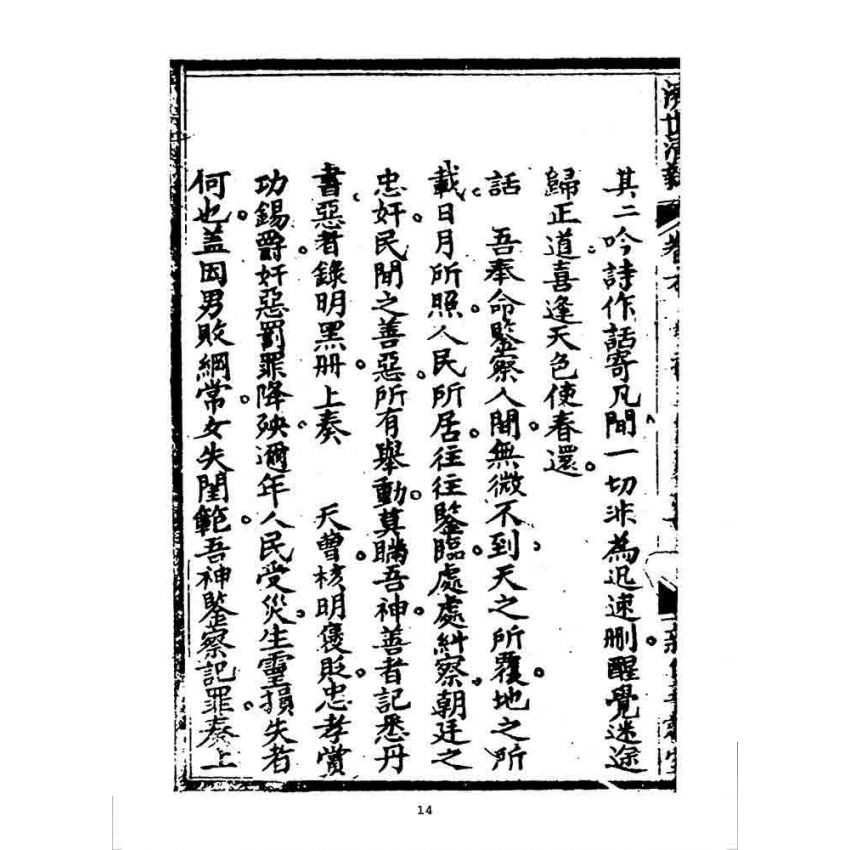 其二吟詩作話寄凡間一切非為迅速刪醒覺迷途
歸正道喜逢天色使春還。
話　吾奉命鑒察人間。無微不到、天之所覆。地之所
載。日月所照。人民所居。往往鑒臨。處處糾察。朝廷之
忠奸。民間之善惡。所有舉動。莫瞞吾神。善者記悉丹
書、惡者錄明黑册。上奏　天曹。核明褒貶。忠孝賞
功錫爵。奸惡罰罪降殃。邇年人民受災。生靈損失者
何也。蓋因男敗綱常。女失閨範。吾神鑒察記罪。奏上
濟世消
14